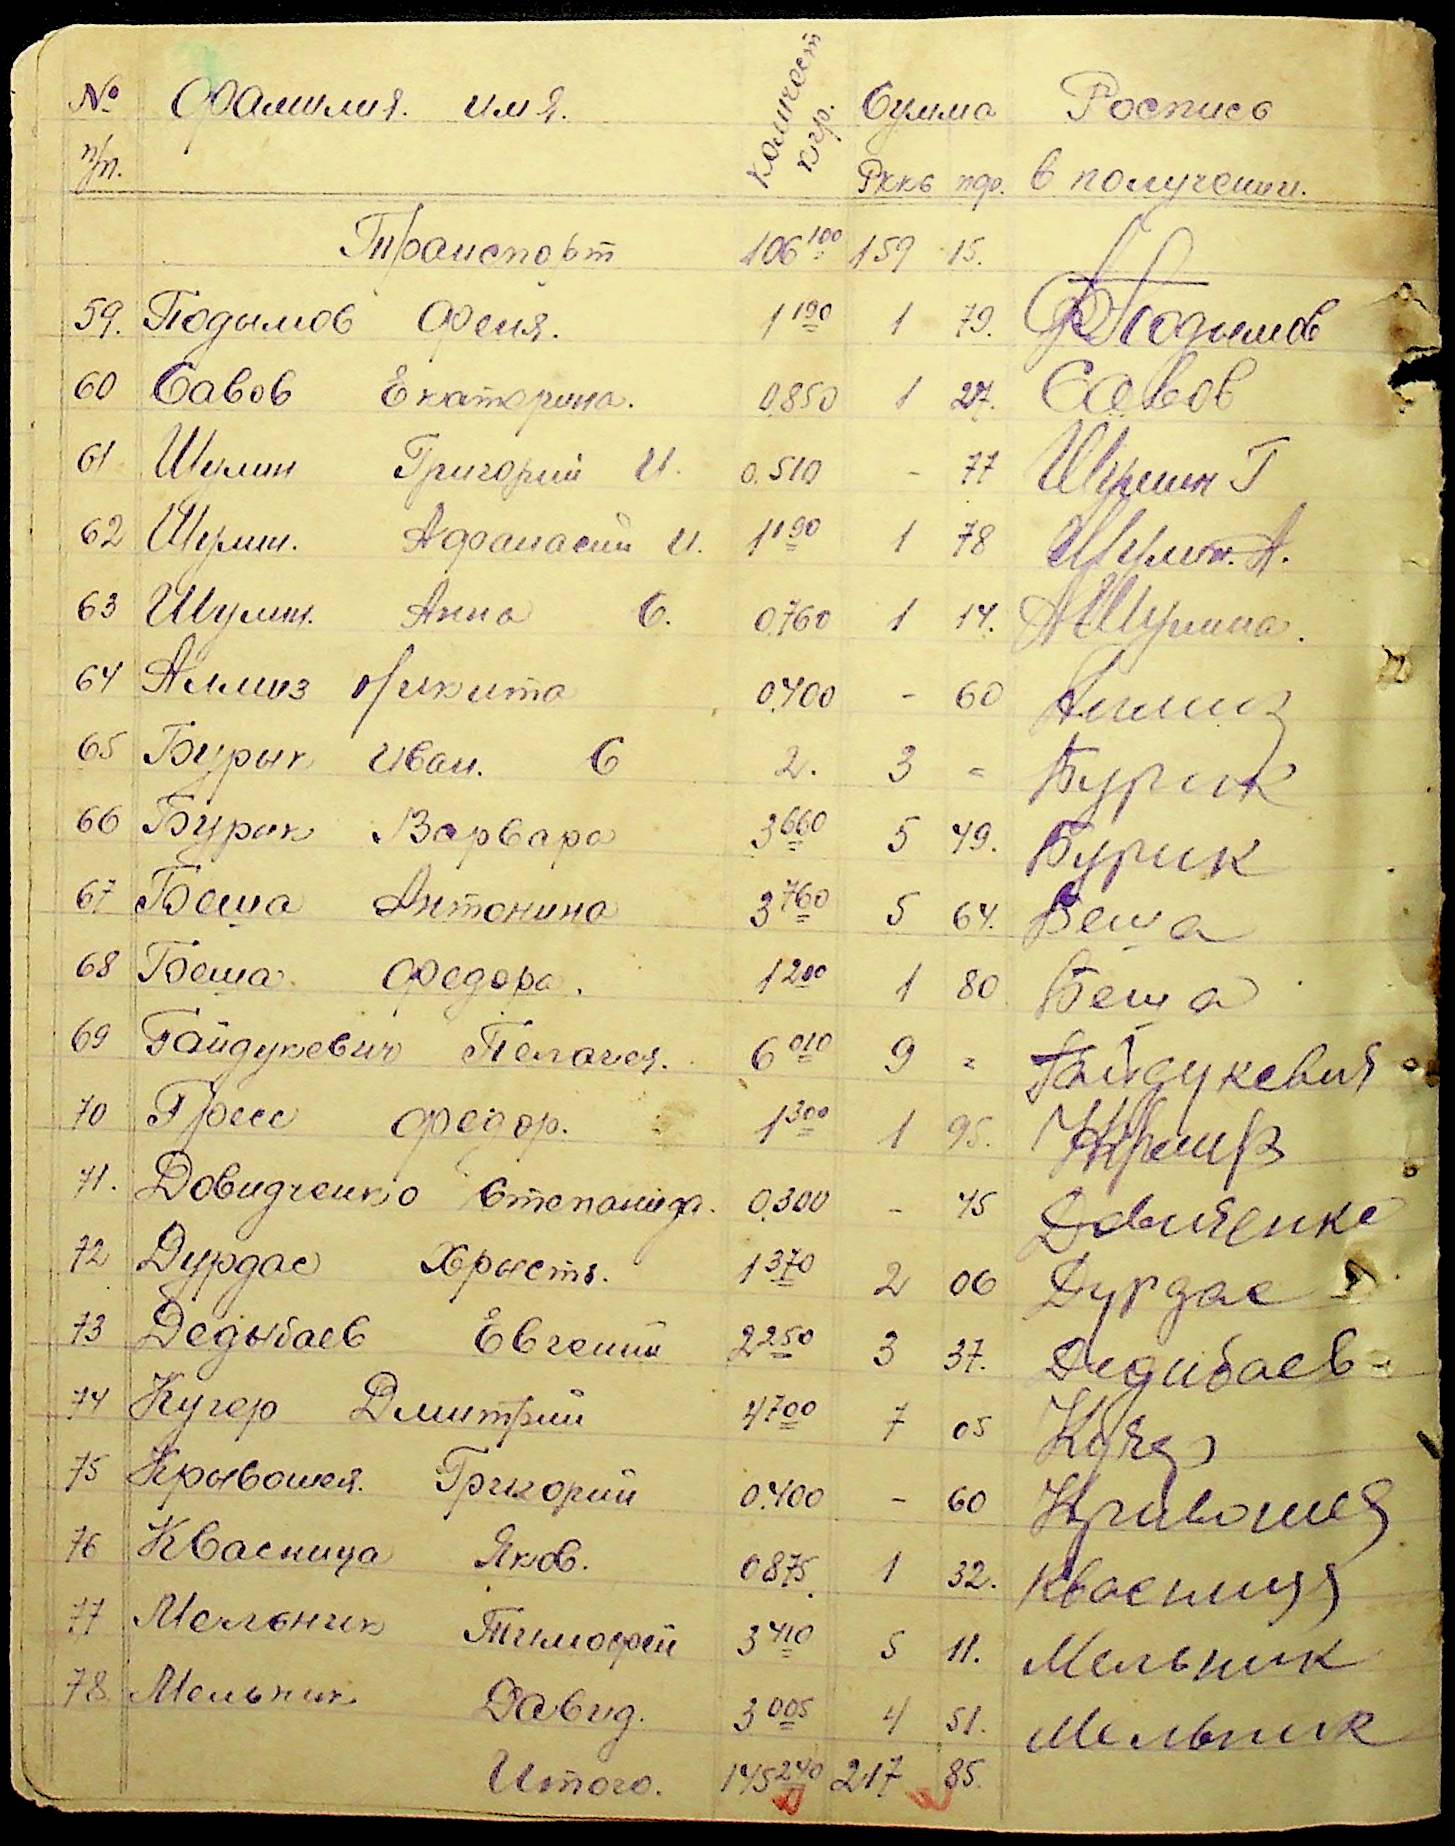 № Фамилия. имя. Количест Сумма Роспись
п/п. кгр. Рккв пф. в получении.
Транспорт 106 100 159 15.
59. Подымов Феня. 1 190 1 79. Ф Подымов
60 Савов Екатерина. 0.850 1 27. Савов
61 Шулин Григорий И. 0.510 - 77 Шулин Г
62 Шулин. Афанасий И. 1 190 1 78 Шулин. А.
63 Шулин. Анна С. 0.760 1 14. А Шулина.
64 Аллииз Никита 0.400 - 60
65 Бурык Иван. С 2. 3 = Бурик
66 Бурык Варвара 3 660 5 49. Бурик
67 Беша Антонина 3 760 5 64. Беша
68 Беша Федора. 1 200 1 80 Беша
69 Гайдукевич Пелагея. 6 010 9 = Гайдукевич
70 Гресс Федор. 1 300 1 95.
71. Довидченко Степанида. 0.300 - 45
72 Дурдас Хрыстя. 1 370 2 06 Дурдас
73 Дедыбаев Евгений 2 250 3 37. Дедибаев
74 Кучер Дмитрий 4 700 7 05 Кучер
75 Крывошея. Григорий 0.400 - 60 Кривошея
76 Квасница Яков. 0.875 1 32. Квасниця
77 Мельник Тимофей 3 410 5 11. Мельник
78 Мельник Давид. 3 005 4 51. Мельник
Итого. 145 240 217 85.